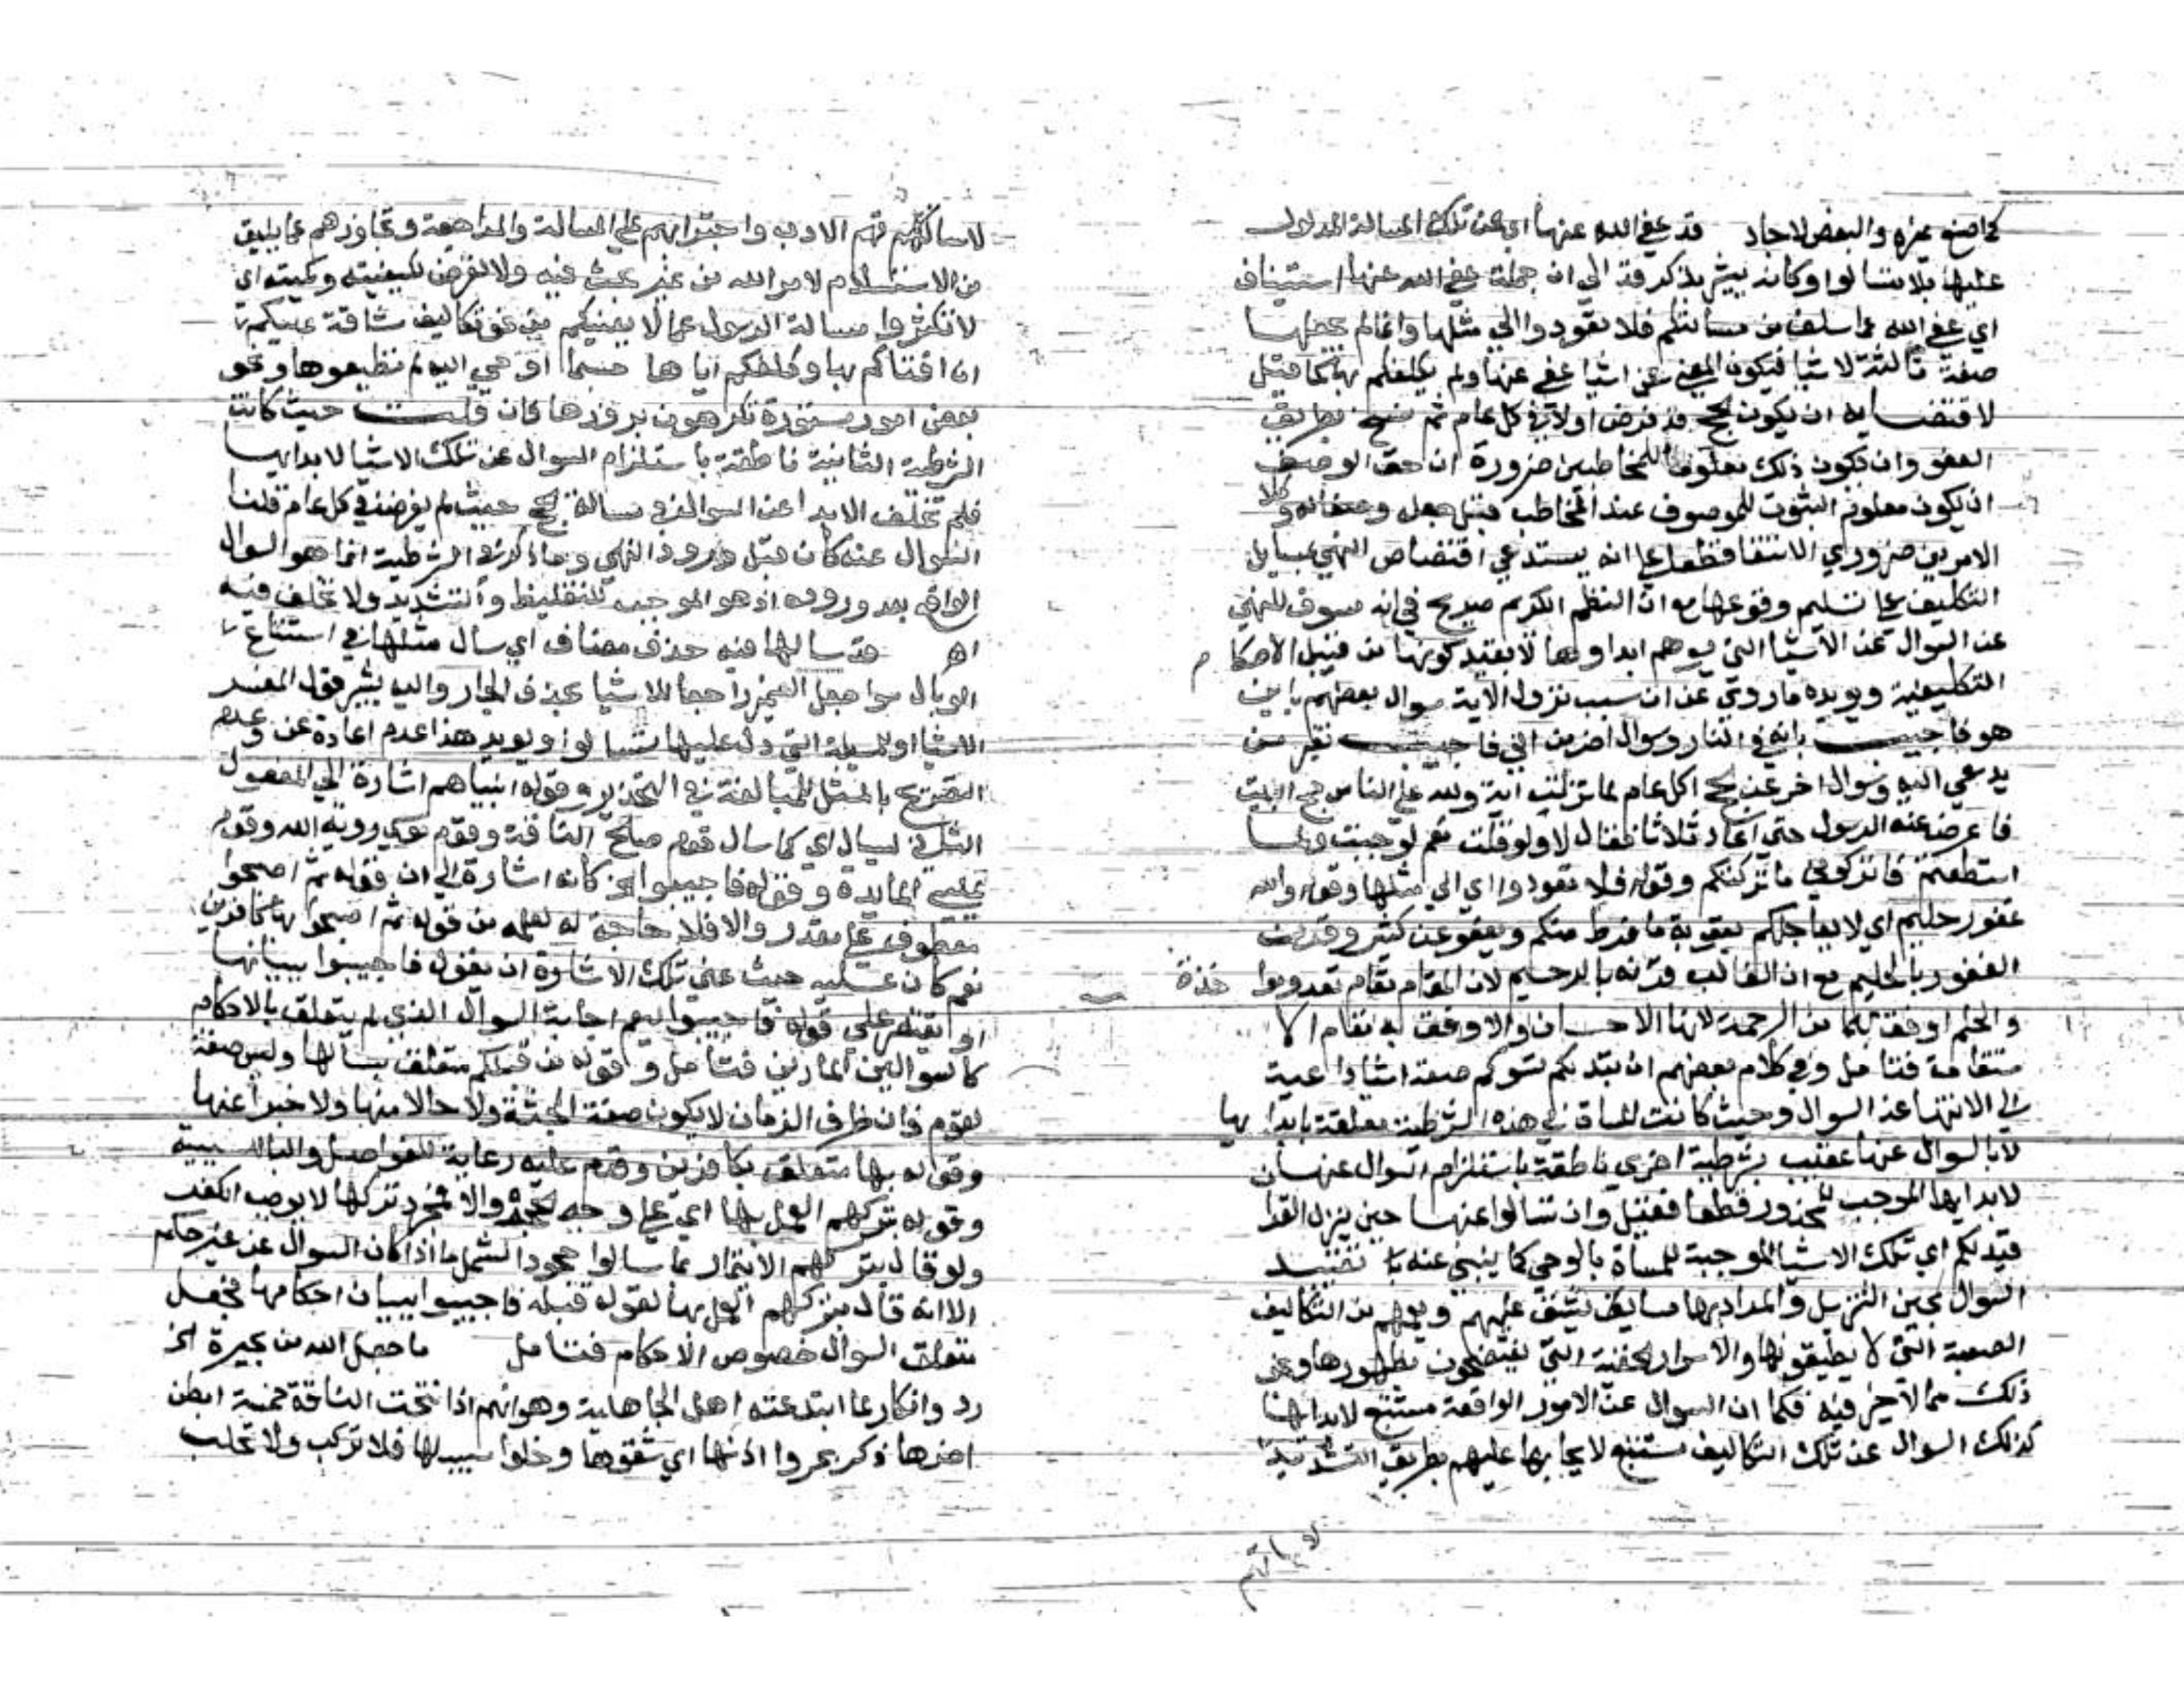 كما صنع غيره والبعض لاجاد قد عفى الله عنها اي عن تلك المسالة المدلول
عليها بلا تسالوا وكانه يشير بذكر قد الى ان جملة عفى الله عنها استيناف
اي عفى الله عما سلف من مسايلكم فلا تعودوا الى مثلها وانما لم يجعلها
صفة ثالثة لاشيا فيكون المعنى عن اشيا عفى عنها ولم يكلفكم بها كما قيل
لاقتضايه ان يكون الحج قد فرض اولا في كل عام ثم نسخ بطريق
العفو وان يكون ذلك معلوما للمخاطبين ضرورة ان حق الوصف
ان يكون معلوم الثبوت للموصوف عند المخاطب قبل جعله وصفا له وكلا
الامرين ضروري الانتفا قطعا على انه يستدعي اقتصاص النهي بمسايل
التكليف على تسليم وقوعها مع ان النظم الكريم صريح في انه مسوق للنهي
عن السوال عن الاشيا التي يسوهم ابداوها لا بقيد كونها من قبيل الاحكام
التكليفية ويويده ما روي عن ان سبب نزول الاية سوال بعضهم باين
هو فاجيب بانه في النار وسوال اخر من ابي فاجيب بغير من
يدعي اليه وسوال اخر عن الحج اكل عام لما نزلت اية ولله على الناس حج البيت
فاعرض عنه الرسول حتى اعاد ثلاثا فقال لا ولو قلت نعم لوجبت ولما
استطعتم فاتركوني ما تركتكم وقوله فلا تعودوا اي الى مثلها وقوله والله
غفور حليم اي لا يعاجلكم بعقوبة ما فرط منكم ويعفو عن كثير وقرن
الغفور بالحليم مع ان الغالب قرنه بالرحيم لان المقام مقام
والحلم اوفق بكما من الرحمة لانها الاحسان والاوفق به مقام
فتامل وفي كلام بعضهم ان تبد لكم تسوكم صفة اشيا داعية
الى الانتها عن السوال وحيث كانت المساة في هذه الشرطية معلقة بابدايها
لا بالسوال عنها عقبت بشرطية اخرى ناطقة باستلزام السوال عنها
لابدايها الموجب للمحذور قطعا فقيل وان تسالوا عنها حين ينزل القرا
تبد لكم اي تلك الاشيا الموجبة للمساة بالوحي كما ينبي عنه تقييد
السوال بحين التنزيل والمراد بها ما يشق عليهم ويغمهم من التكاليف
الصعبة التي لا يطيقونها والاسرار الخفية التي يفتضحون بظهورها ونحو
ذلك مما لا خير فيه فكما ان السوال عن الامور الواقعة مستتبع لابدايها
كذلك السوال عن تلك التكاليف مستتبع لايجابها عليهم بطريق التشديد
لاساتهم
لاساتهم الادب واجترايهم على المسالة والمراجعة وتجاوزهم عما يليق
من الاستسلام لامر الله من غير بحث فيه ولا تعرض لكيفيته وكميته اي
لا تكثروا مسالة الرسول عما لا يعنيكم من نحو تكاليف شاقة عليكم
ان افتاكم بها وكلفكم اياها حسبما اوحي اليه لم تطيقوها ونحو
بعض امور مستورة تكرهون بروزها فان قلت حيث كانت
الشرطية الثانية ناطقة باستلزام السوال عن تلك الاشيا لابدايها
فلم تخلف الابدا عن السوال في مسالة الحج حيث لم يفرض في كل عام قلنا
السوال عنه كان قبل ورود النهي وما ذكر في الشرطية انما هو السوال
الواقع بعد وروده اذ هو الموجب للتغليظ والتشديد ولا تخلف فيه
اه قد سالها فيه حذف مضاف اي سال مثلها في استتباع
الوبال سوا جعل الضمير راجعا للاشيا بحذف الجار واليه يشير قول المفسر
الاشيا او للمسيلة التي دل عليها تسالوا ويويد هذا عدم اعادة عن وعدم
التصريح بالمثل للمبالغة في التحذير وقوله انبياهم اشارة الى المفعول
الثاني لسال اي كما سال قوم صالح الناقة وقوم موسى روية الله وقوم
عيسى المايدة وقوله فاجيبوا الخ كانه اشارة الى ان قوله ثم اصبحوا
معطوف على مقدر والا فلا حاجة له لعلمه من قوله ثم اصبحوا بها كافرين
نعم كان عليه حيث عنى تلك الاشارة ان يقول فاجيبوا ببيانها
او يقتصر على قوله فاجيبوا ليعم اجابة السوال الذي لم يتعلق بالاحكام
كالسوالين المارين فتامل وقوله من قبلكم متعلق بسالها وليس صفة
لقوم فان ظرف الزمان لا يكون صفة الجثة ولا حالا منها ولا خبرا عنها
وقوله بها متعلق بكافرين وقدم عليه رعاية للفواصل والبا للسببية
وقوله بتركهم العمل بها اي على وجه الجحود والا فمجرد تركها لا يوجب الكفر
ولو قال بتركهم الايتمار بما سالوا جحودا لشمل ما اذا كان السوال عن غير حكم
الا انه قال بتركهم العمل بها لقوله قبله فاجيبوا ببيان احكامها فجعل
متعلق السوال خصوص الاحكام فتامل ما جعل الله من بحيرة الخ
رد وانكار لما ابتدعته اهل الجاهلية وهو انهم اذا نتجت الناقة خمسة ابطن
اخرها ذكر بحروا اذنها اي شقوها وخلوا سبيلها فلا تركب ولا تحلب